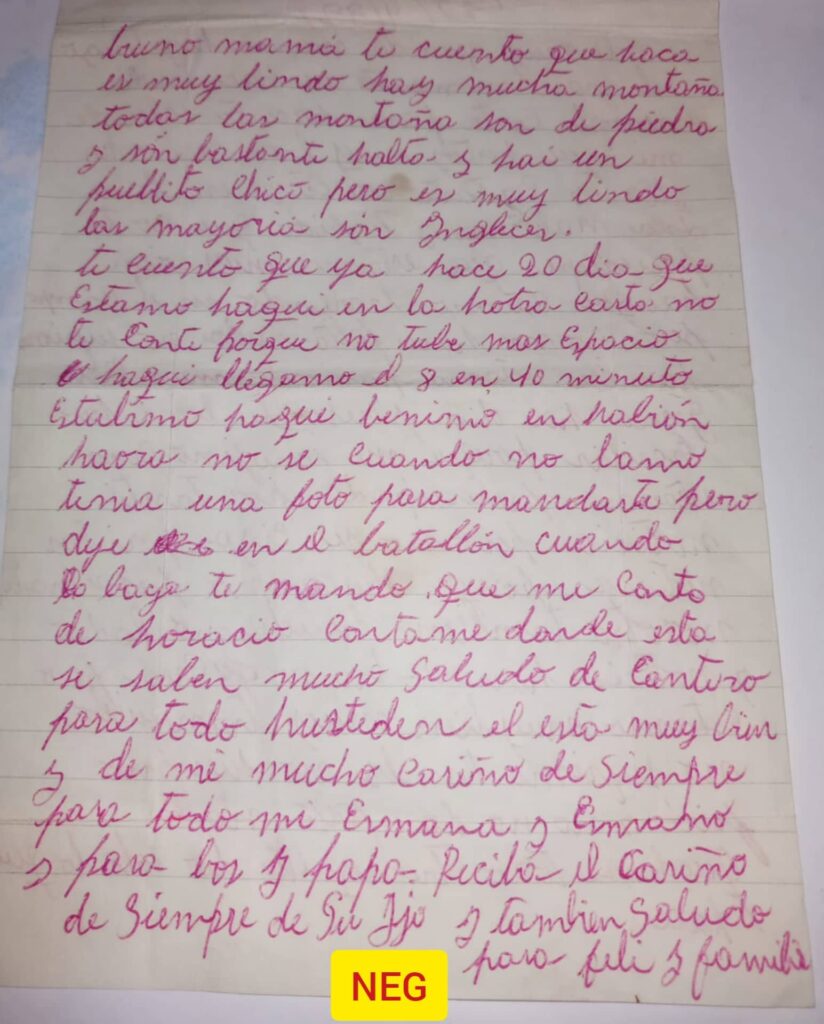 bueno mamá te cuento que haca
es muy lindo hay mucha montaña
todas las montaña son de piedra
y són bastante halta y hai un
pueblito chico pero es muy lindo
las mayoria són Inglecer.
te cuento que ya hace 20 dia que
Estamo haqui en la hotra carta no
te conte porque no tube mas Espacio
haqui llegamo el 8 en 40 minuto
Estubimo haqui benimo en habión
haora no se cuando no bamo
tenia una foto para mandarte pero
dije en el batallón cuando
baya te mando. que me conta
de horacio contame donde esta
si saben mucho Saludo de Cantero
para todo husteden el esta muy bien
y de mi mucho cariño de siempre
para todo mi Ermana y Ermano
y para bos y papa. Reciba el Cariño
de Siempre de Su Ijo y tambien Saludo
para feli y familia
NEG